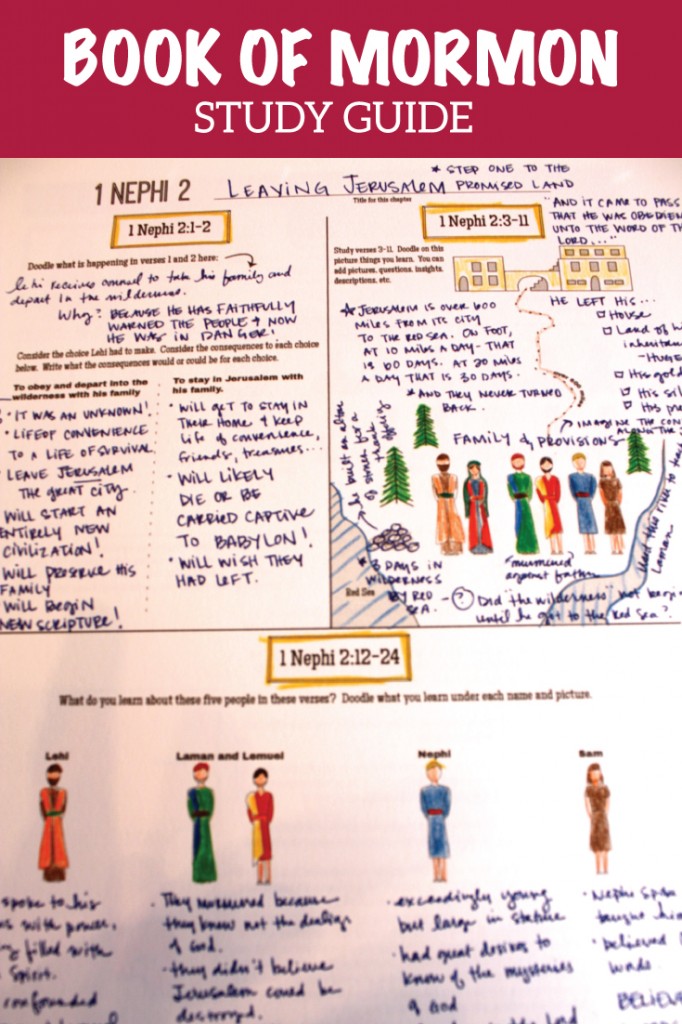 BOOK OF MORMON
STUDY GUIDE
* STEP ONE TO THE
1 NEPHI 2 LEAVING JERUSALEM PROMISED LAND
Title for this chapter
1 Nephi 2:1-2
Doodle what is happening in verses 1 and 2 here:
Lehi receives counsel to take his family and
depart in the wilderness.
Why? BECAUSE HE HAS FAITHFULLY
WARNED THE PEOPLE & NOW
HE WAS IN DANGER!
Consider the choice Lehi had to make. Consider the consequences to each choice
below. Write what the consequences would or could be for each choice.
To obey and depart into the
wilderness with his family
• IT WAS AN UNKNOWN!
• LIFE OF CONVENIENCE
TO A LIFE OF SURVIVAL
LEAVE JERUSALEM
THE GREAT CITY.
WILL START AN
ENTIRELY NEW
CIVILIZATION!
WILL PRESERVE HIS
FAMILY
WILL BEGIN
NEW SCRIPTURE!
To stay in Jerusalem with
his family.
• WILL GET TO STAY IN
THEIR HOME & KEEP
LIFE OF CONVENIENCE,
FRIENDS, TREASURES...
• WILL LIKELY
DIE OR BE
CARRIED CAPTIVE
TO BABYLON!
• WILL WISH THEY
HAD LEFT.
1 Nephi 2:3-11
"AND IT CAME TO PASS
THAT HE WAS OBEDIEN
UNTO THE WORD OF TH
LORD,..."
Study verses 3-11. Doodle on this
picture things you learn. You can
add pictures, questions, insights,
descriptions, etc.
* JERUSALEM IS OVER 600
MILES FROM ITS CITY
TO THE RED SEA. ON FOOT,
AT 10 MILES A DAY - THAT
IS 60 DAYS. AT 20 MILES
A DAY THAT IS 30 DAYS.
* AND THEY NEVER TURNED
BACK.
HE LEFT HIS...
House
Land of hi
inheritan
HUGE
His gold
His sil
His pre
IMAGINE THE CON
ALONG THE
FAMILY & PROVISIONS
he built an altar
of stones for a
thank
offering
* 3 DAYS IN
WILDERNESS
BY RED
SEA.
Red Sea
"murmured"
against father
Laman
? Did "the wilderness" not begin
until he got to the Red Sea?
1 Nephi 2:12-24
What do you learn about these five people in these verses? Doodle what you learn under each name and picture.
Lehi
Laman and Lemuel
Nephi
Sam
spoke to his
with power,
filled with
spirit.
confounded
• They murmured because
they knew not the dealings
of God.
• they didn't believe
Jerusalem could be
destroyed.
• exceedingly young
but large in stature
• had great desires to
know of the mysteries
of God
• Nephi
• believed
BELIEV